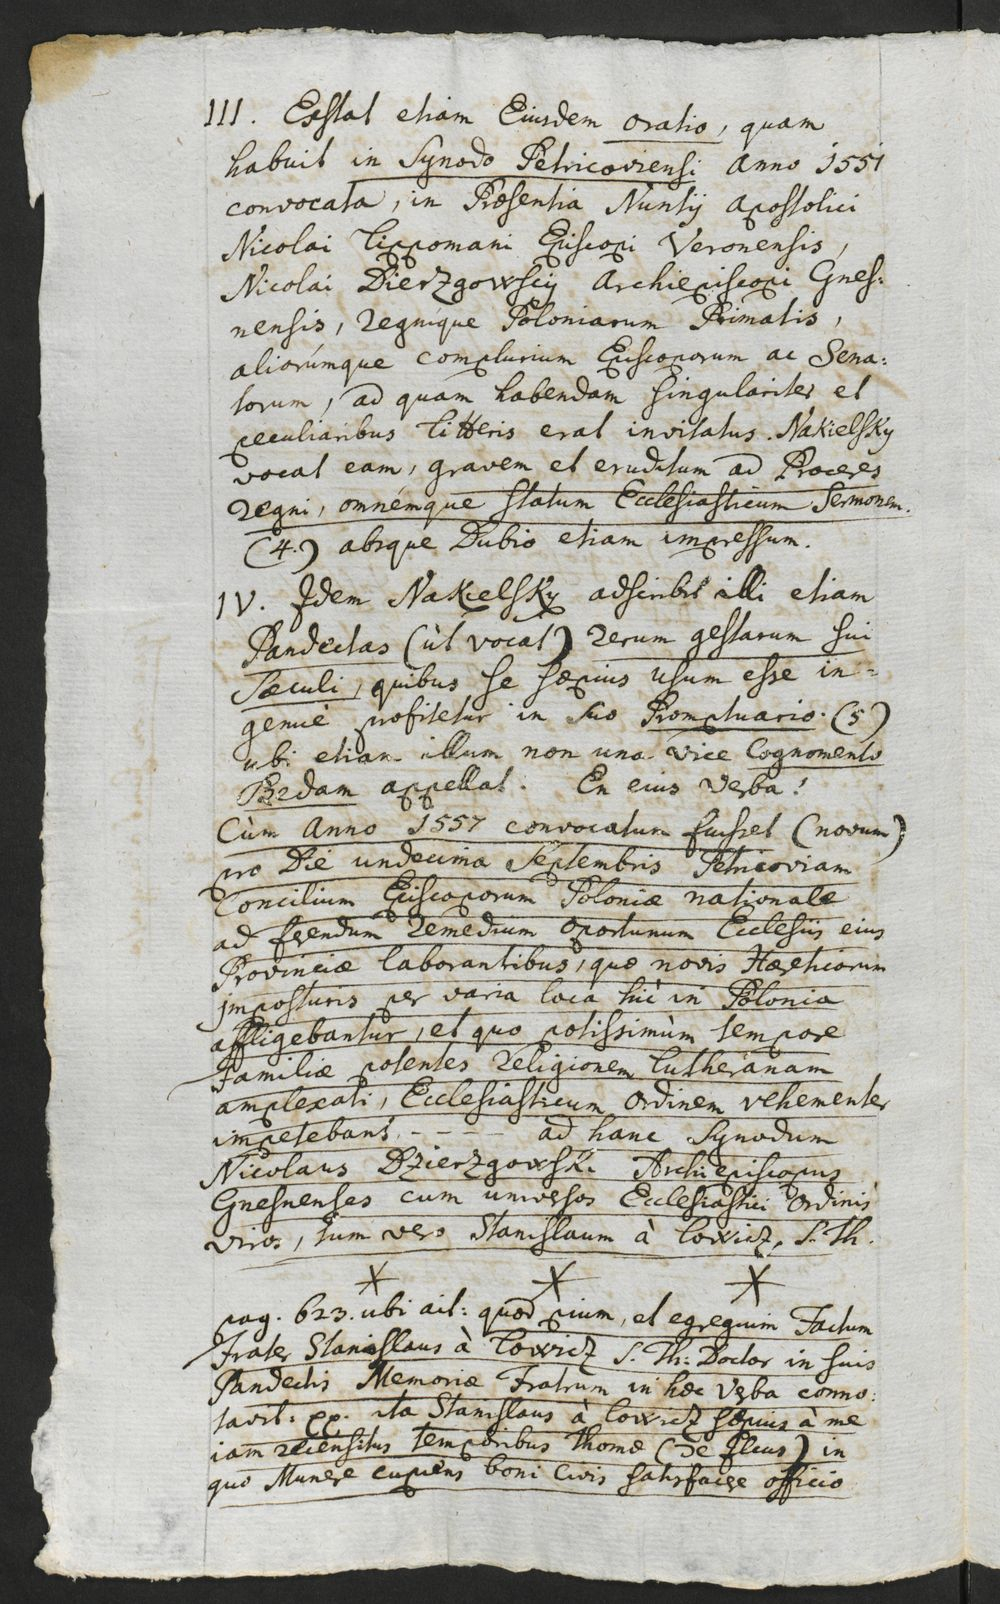 III. Exstat etiam Eiusdem oratio, quam
habuit in Synodo Petricoviensi Anno 1551
convocata, in Præsentia Nuntij Apostolici
Nicolai Lippomani Episcopi Veronensis,
Nicolai Dierzgowscij Archiepiscopi Gnes:
nensis, Regnique Poloniarum Primatis,
aliorúmque complurium Episcoporum ac Sena:
torum, ad quam habendam singulariter et
peculiaribus Litteris erat invitatus. Nakielsky
vocat eam, gravem et eruditum ad Proceres
Regni, omnémque statum Ecclesiasticum Sermonem.
(4.) absque Dubio etiam impressum.
IV. Idem Nakielsky adscribit illi etiam
Pandectas (ùt vocat) rerum gestarum sui
Sæculi, quibus se sæpius usum esse in-
genuè profitetur in suo Promptuario. (5)
ubi etiam illum non una vice Cognomento
Bzdam appellat. En eius verba!
Cùm Anno 1557 convocatum fuisset (novum)
pro Die undecima Septembris Petricoviam
Concilium Episcoporum Poloniæ nationale
ad ferendum remedium oportunum Ecclesiis eius
Provinciæ laborantibus, quæ novis Hæreticorum
imposturis per varia loca hìc in Polonia
affligebantur, et quo potissimùm tempore
Familiæ potentes religionem Lutheranam
amplexati, Ecclesiasticum Ordinem vehementer
impetebant. - - - - ad hanc Synodum
Nicolaus Dzierzgowski Archiepiscopus
Gnesnenses cum universos Ecclesiastici Ordinis
viros, tum vero Stanislaum à Lowicz, S. Th.
pag. 623. ubi ait: quod pium, et egregium Factum
Frater Stanislaus à Lowicz S. Th: Doctor in suis
Pandectis Memoriæ Fratrum in hæc verba conno:
tavit. ita Stanislaus à Lowicz sæpius à me
iam recensitus temporibus Thomæ (de Ilcus) in
quo Munere cupiens boni Civis satisfacere officio